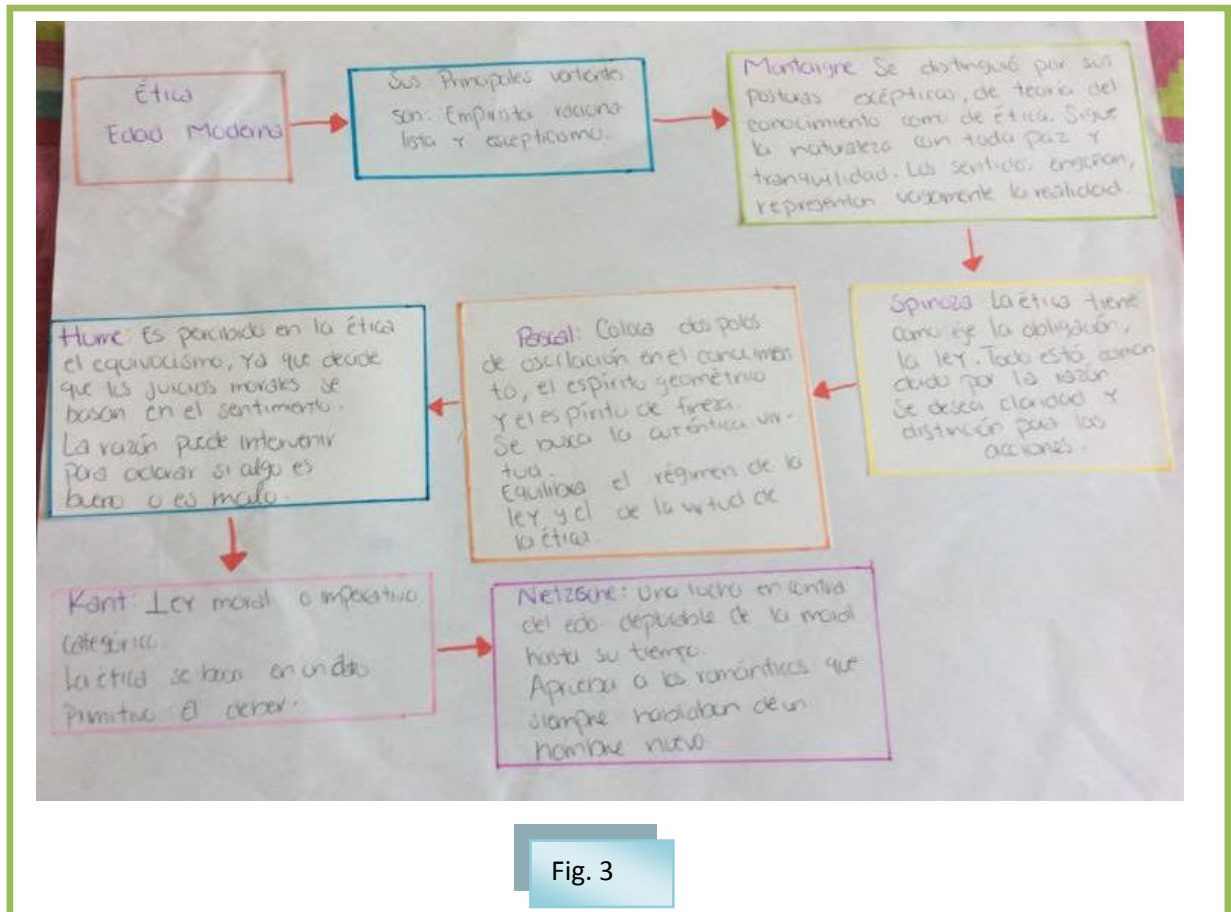 Ética
Edad Moderna
Sus Principales vertientes
son: Empirista raciona
lista y escepticismo.
Montaigne Se distinguió por sus
posturas excépticas, de teoría del
conocimiento como de ética. Sigue
la naturaleza con toda paz y
tranquilidad. Los sentidos engañan,
representan vagamente la realidad.
Spinoza La ética tiene
como eje la obligación,
la ley. Todo está
por la razón
Se desea claridad y
distinción para las
acciones.
Pascal: Coloca dos polos
de oscilación en el conocimien
to, el espíritu geométrico
y el espíritu de fineza.
Se busca la auténtica vir-
tud.
Equilibra el régimen de la
ley y el de la virtud de
la ética
Hume: Es percibido en la ética
el equivocismo, ya que decide
que los juicios morales se
basan en el sentimento.
La razón puede intervenir
para aclarar si algo es
bueno o es malo.
Kant: Ley moral o imperativo
categórico.
La ética se basa en un dato
Primitivo El deber.
Netzsche: Una lucha en contra
del edo. deplorable de la moral
hasta su tiempo.
Aprueba a los románticos que
siempre hablaban de un
hombre nuevo
Fig. 3